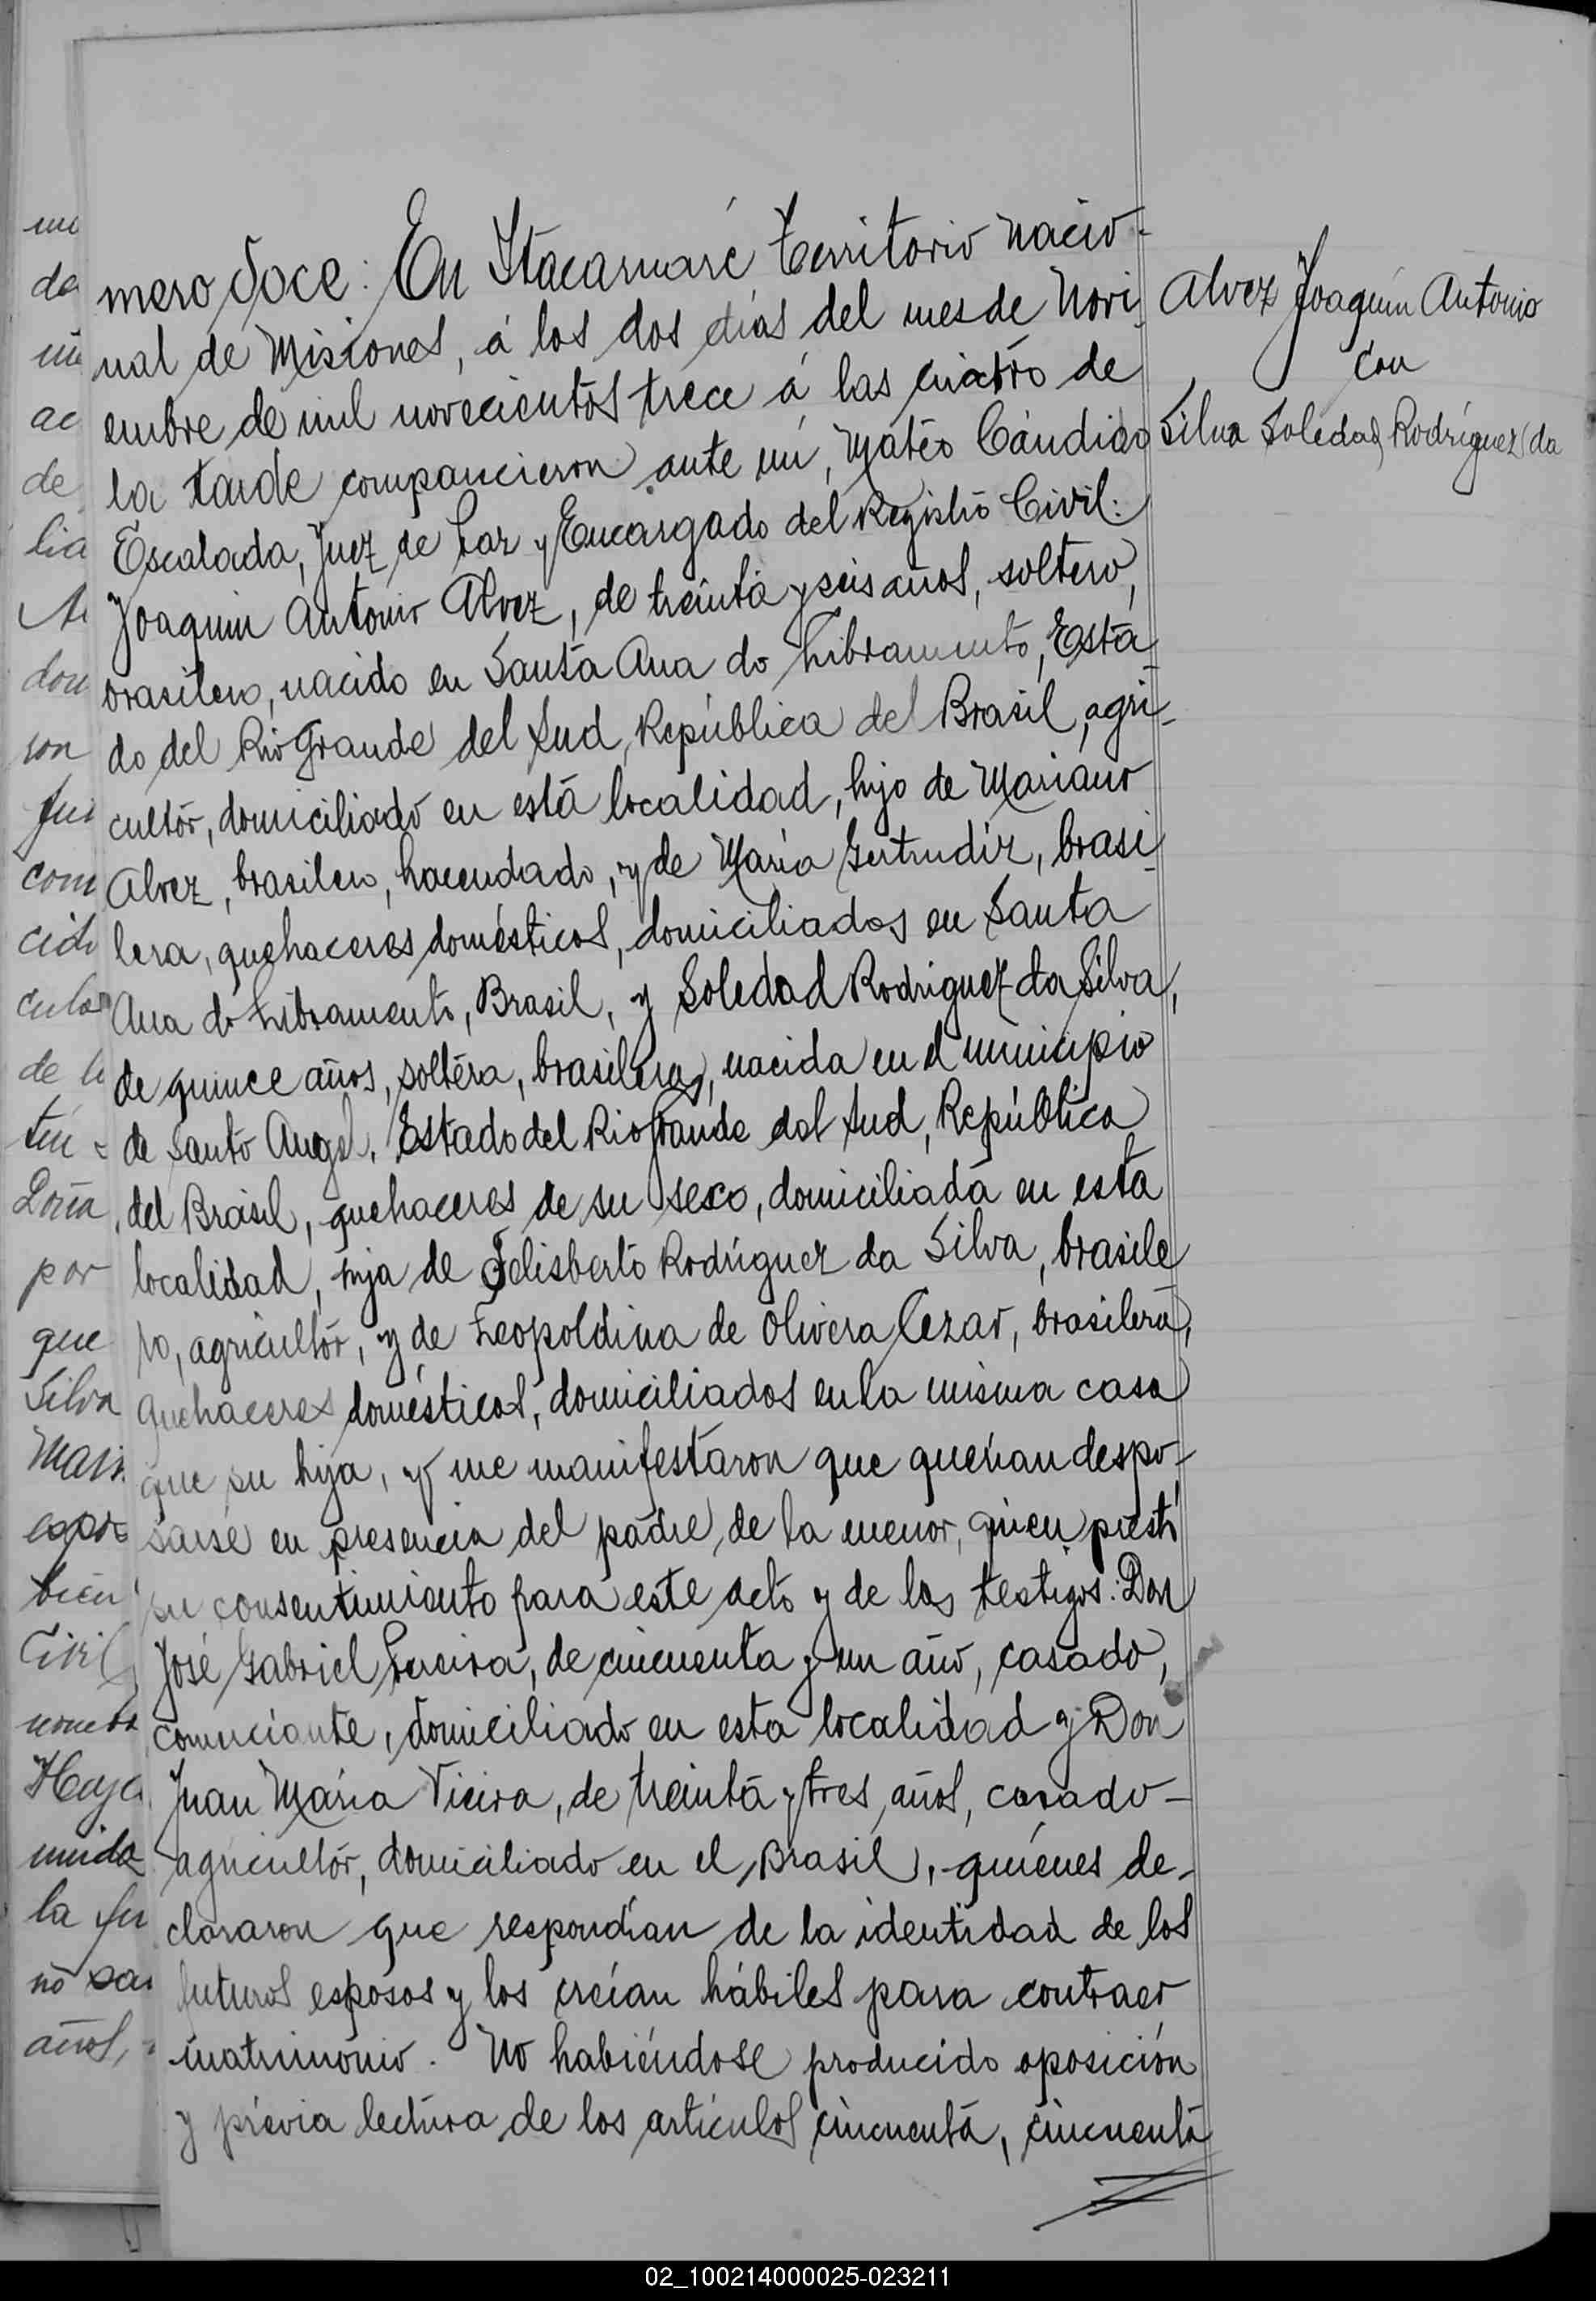 mero doce: En Itacaruaré Territorio nacio-
nal de Misiones, á los dos días del mes de Novi-
embre de mil novecientos trece á las cuatro de
la tarde comparecieron ante mí, Matéo Cándido
Escalada, Juez de Paz y Encargado del Registro Civil:
Joaquin Antonio Alvez, de treinta y seis años, soltero,
brasilero, nacido en Santa Ana do Libramento, Esta-
do del Rio Grande del Sud, República del Brasil, agri-
cultor, domiciliado en esta localidad, hijo de Mariano
Alvez, brasilero, hacendado, y de María Gertrudiz, brasi-
lera, quehaceres domésticos, domiciliados en Santa
Ana do Libramento, Brasil, y Soledad Rodriguez da Silva,
de quince años, soltera, brasilera, nacida en el municipio
de Santo Angel, Estado del Rio Grande del Sud, República
del Brasil, quehaceres de su sexo, domiciliada en esta
localidad, hija de Felisberto Rodríguez da Silva, brasile
ro, agricultor, y de Leopoldina de Olivera Cezar, brasilera,
quehaceres domésticos, domiciliados en la misma casa
que su hija, y me manifestaron que querían despo-
sarse en presencia del padre de la menor, quien prestó
su consentimiento para este acto y de los testigos: Don
José Gabriel Pereira, de cincuenta y un año, casado,
comerciante, domiciliado en esta localidad y Don
Juan María Vieira, de treinta y tres años, casado-
agricultor, domiciliado en el Brasil, quienes de-
clararon que respondían de la identidad de los
futuros esposos y los creían hábiles para contraer
matrimonio. No habiéndose producido oposición
y prévia lectura de los artículos cincuenta, cincuenta
Alvez Joaquín Antonio
con
Silva Soledad Rodríguez (da
da
ac
de
lia
dou
ron
com
de
Doña
por
que
Silva
bien
Civil
la
no
años,
02_100214000025-023211